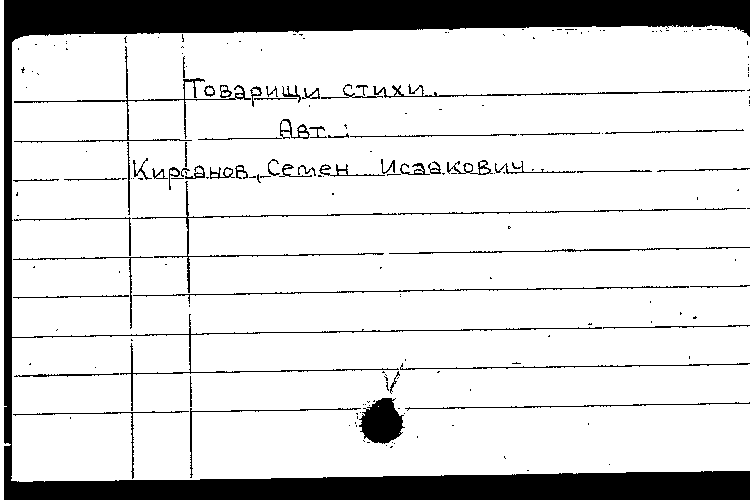 Товарищи стихи.
Авт.:
Кирсанов, Семен Исаакович.